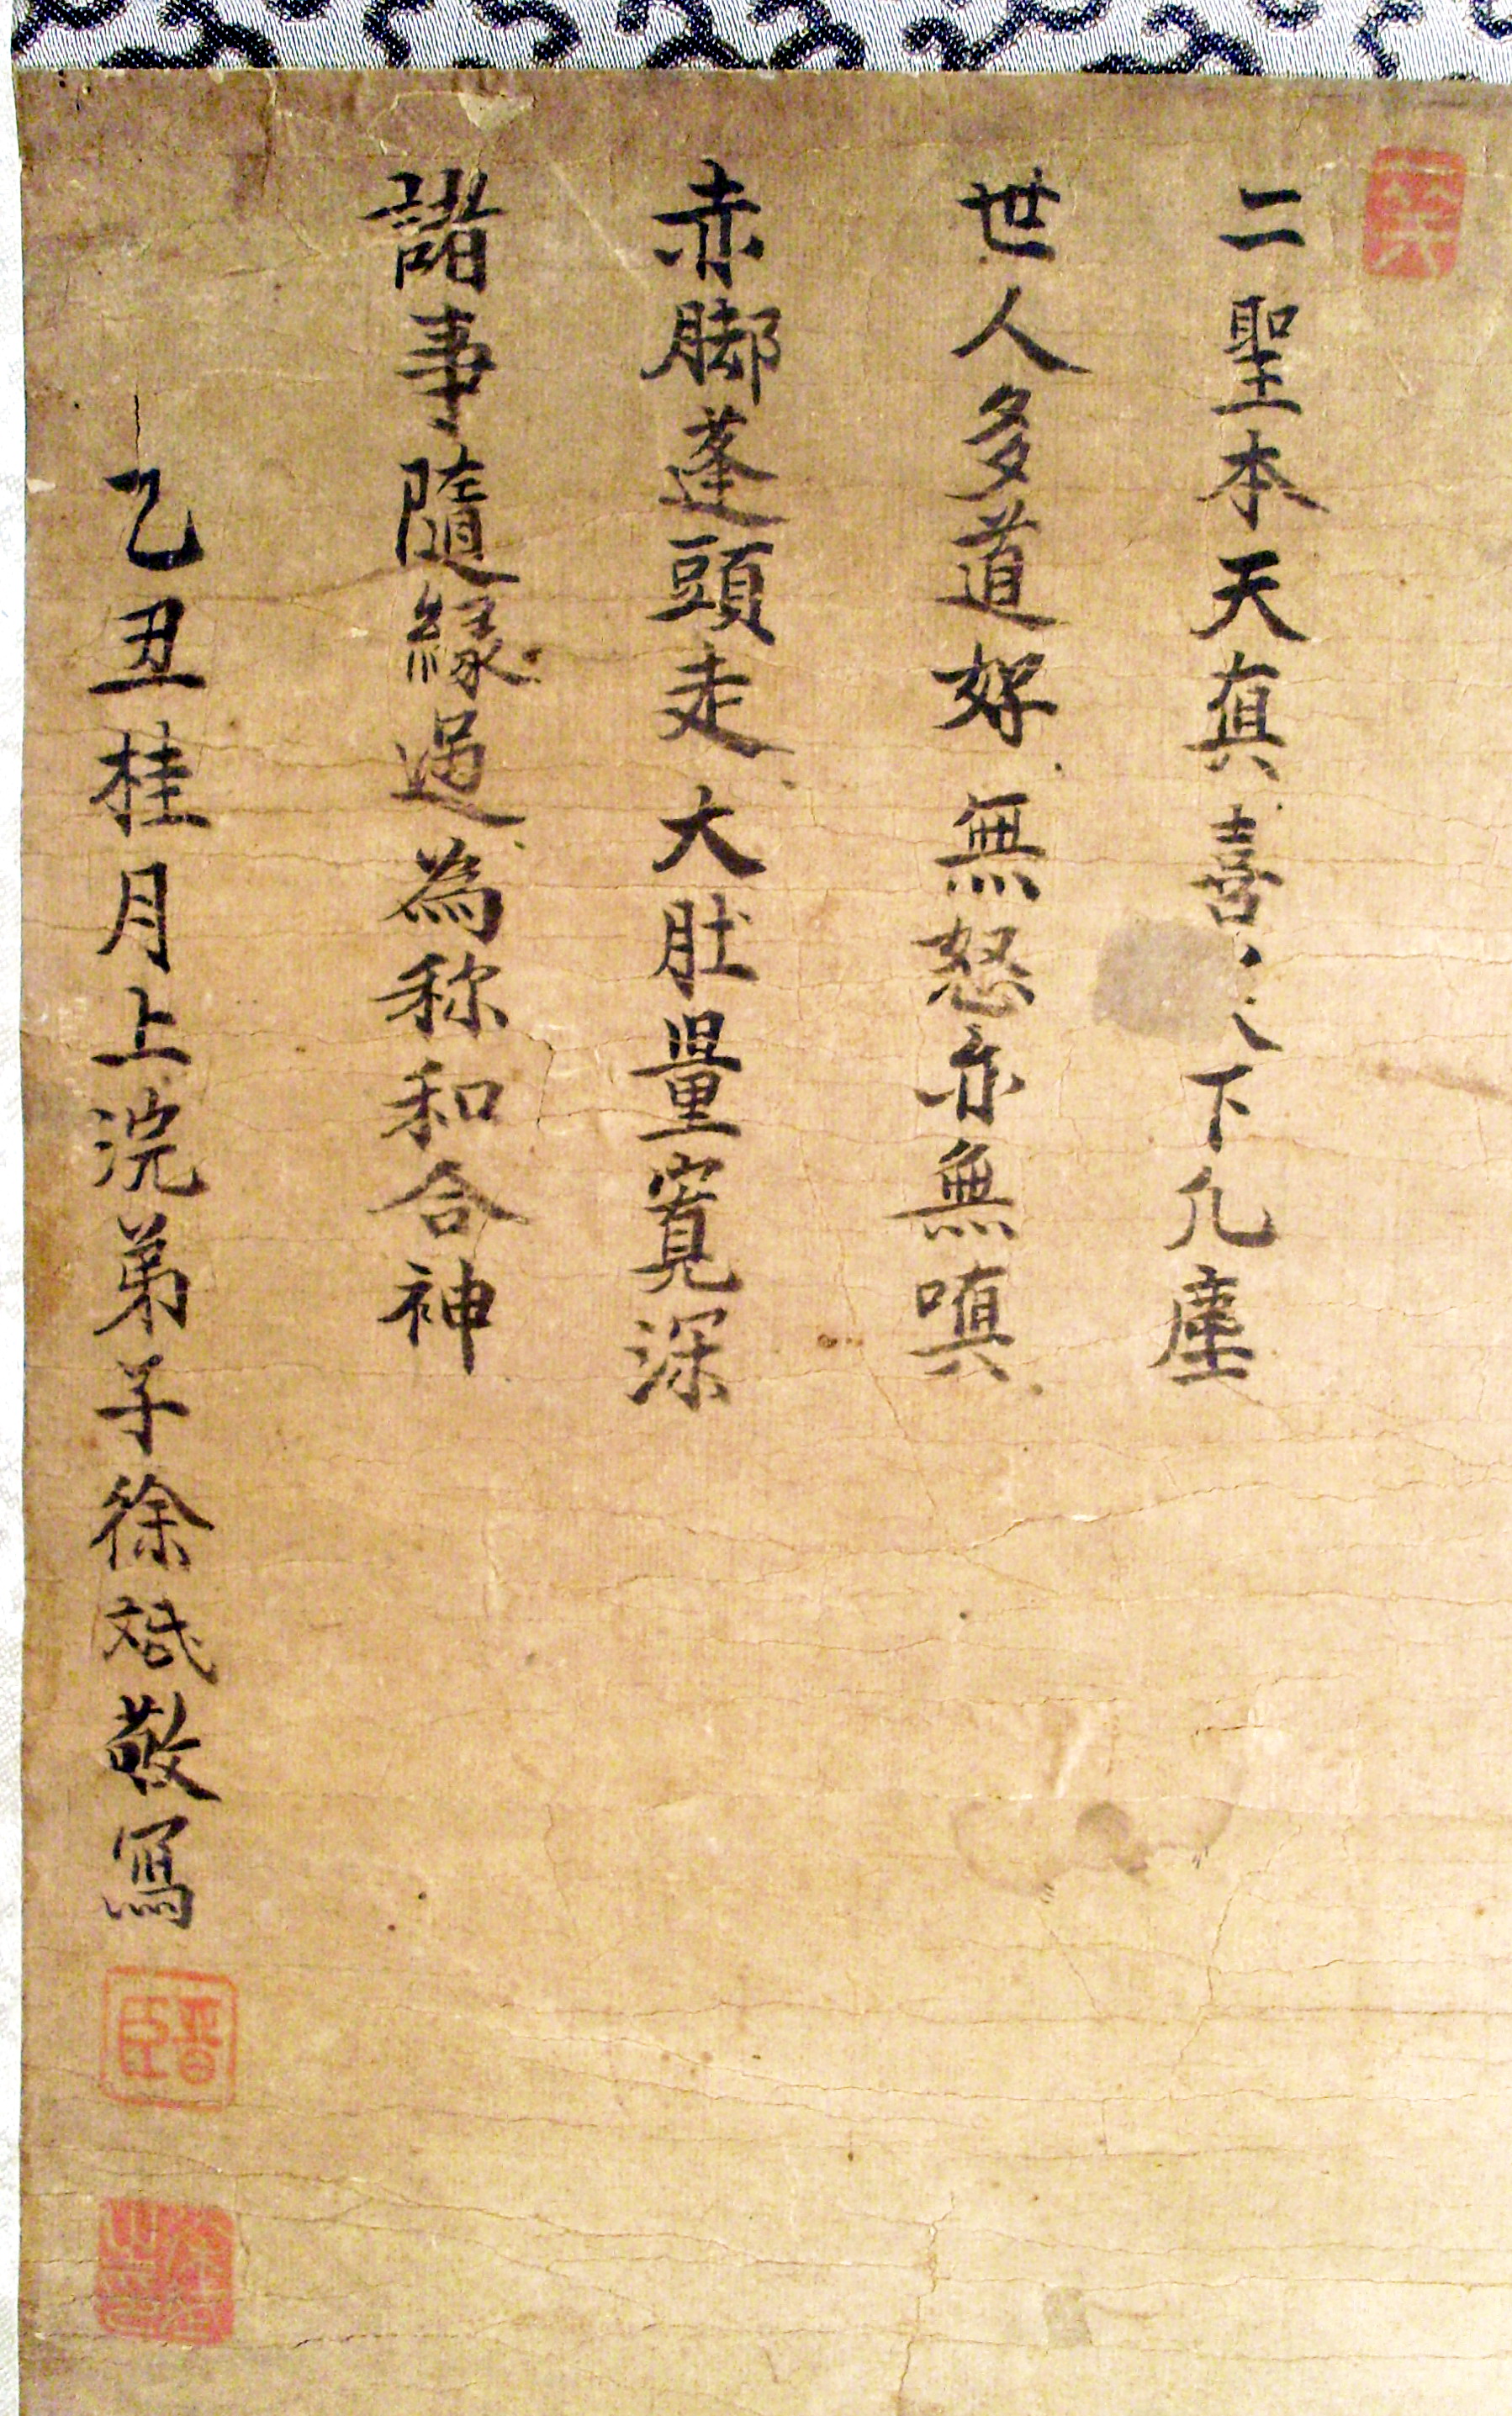 二聖本天真喜下凡塵
世人多道好無怒亦無嗔
赤脚蓬頭走大肚量寬深
諸事隨緣過為称和合神
乙丑桂月上浣弟子徐敬寫
晋臣